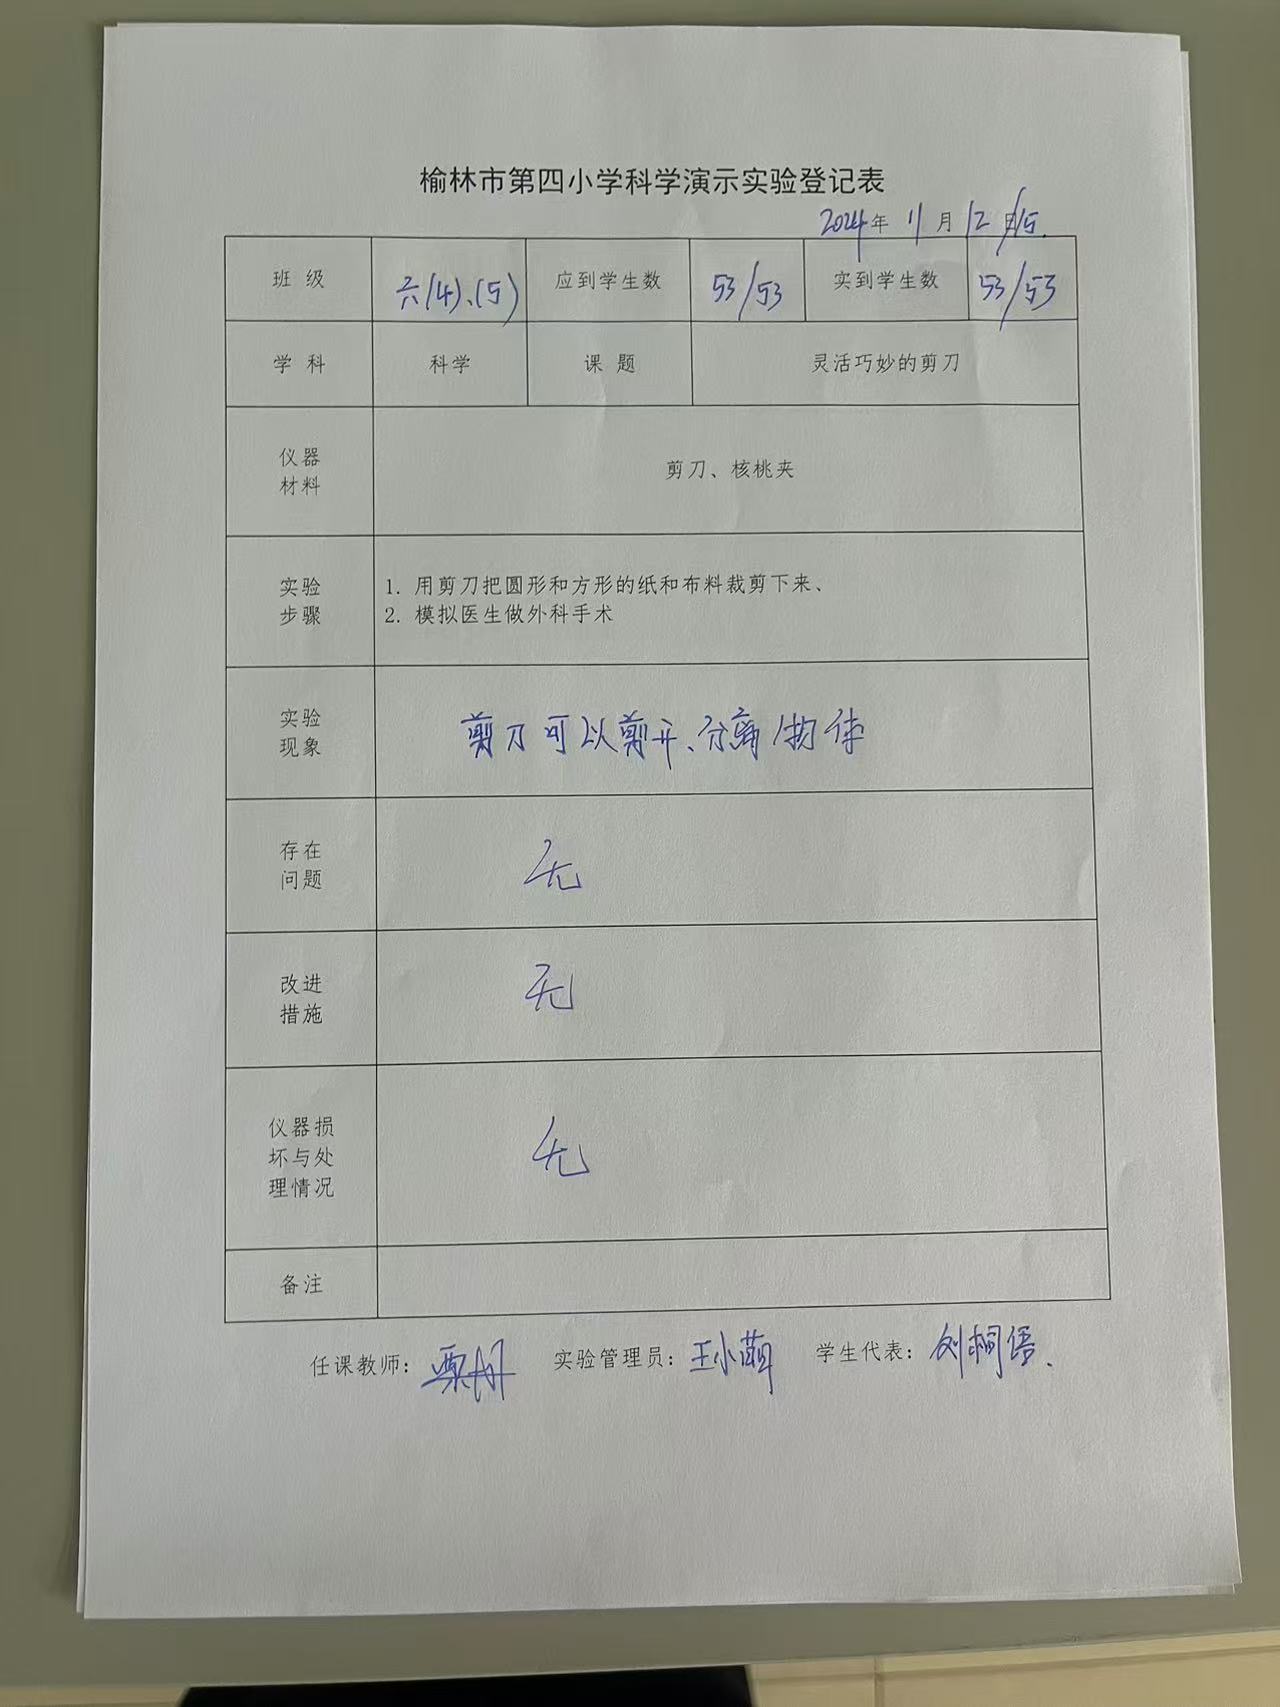 榆林市第四小学科学演示实验登记表
2024年 11月 12日/15.
班 级 六(4)、(5) 应到学生数 53/53 实到学生数 53/53
学 科 科学 课 题 灵活巧妙的剪刀
仪器
材料
剪刀、核桃夹
实验
步骤
1. 用剪刀把圆形和方形的纸和布料裁剪下来、
2. 模拟医生做外科手术
实验
现象
剪刀可以剪开、分离物体
存在
问题
无
改进
措施
无
仪器损
坏与处
理情况
无
备注
任课教师: 栗丹 实验管理员: 王小萌 学生代表: 刘桐语、